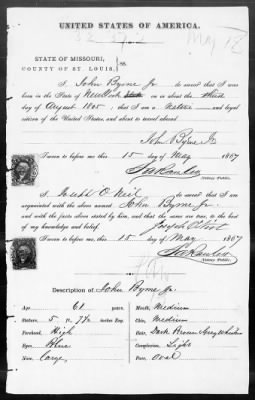 May 18
UNITED STATES OF AMERICA.
STATE OF MISSOURI, } ss.
COUNTY OF ST. LOUIS,
I, John Byrne Jr do swear that I was
born in the State of New York on or about the third
day of August 1805; that I am a Native and legal
citizen of the United States, and about to travel abroad
John Byrne Jr
Sworn to before me, this 15 day of May 1867
Notary Public.
I, Joseph O'Neil do swear that I am
acquainted with the above named John Byrne Jr.
and with the facts above stated by him, and that the same are true, to the best
of my knowledge and belief. Joseph O'Neil
Sworn to before me, this 15 day of May 1867
Notary Public.
Description of John Byrne Jr.
Age 61 years. Mouth, Medium
Stature, 5 ft. 7½ inches Eng. Chin, Medium
Forehead, High Hair, Dark Brown Grey Whiskers
Eyes, Blue Complexion, Light
Nose, Large, Face, Oval